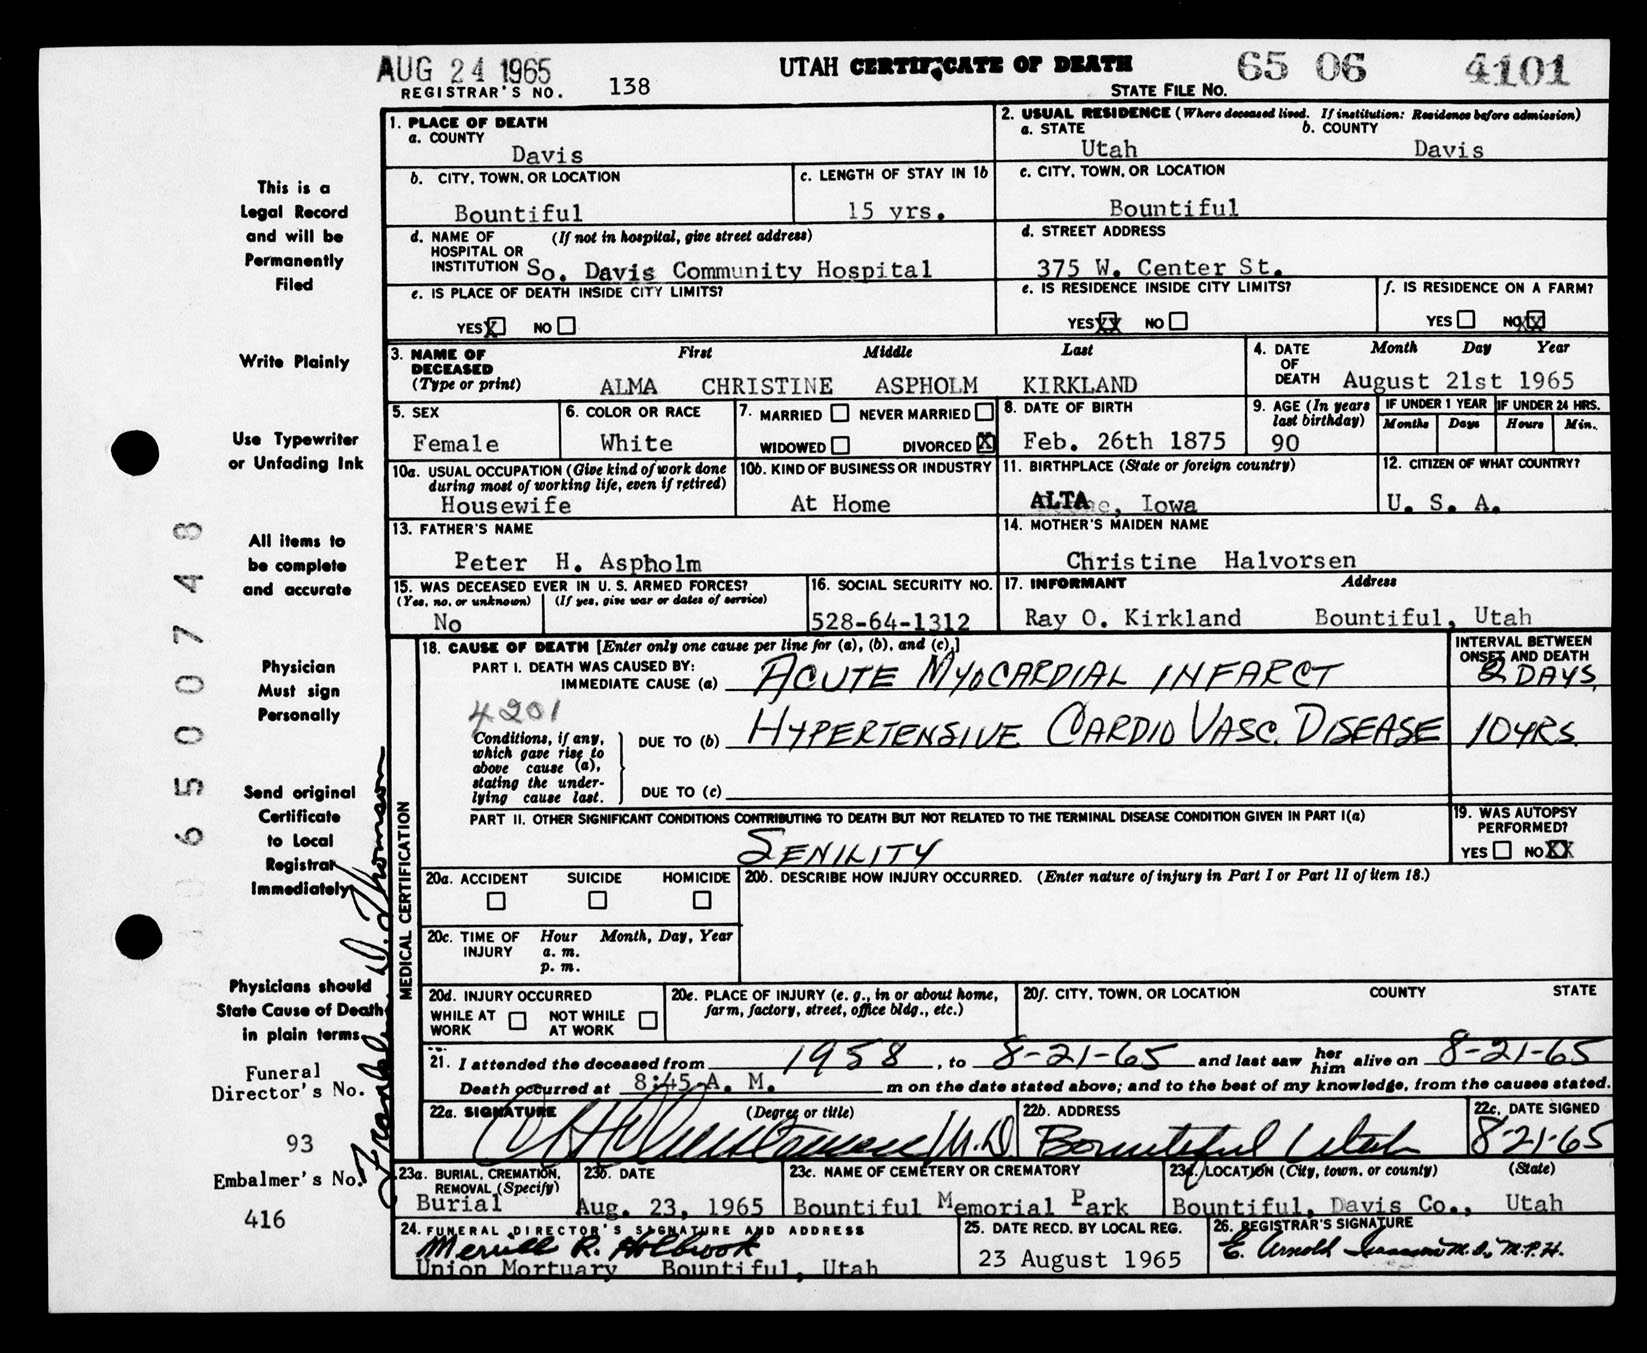 AUG 24 1965
REGISTRAR'S NO. 138
UTAH CERTIFICATE OF DEATH
65 06 4101
STATE FILE NO.
This is a
Legal Record
and will be
Permanently
Filed
Write Plainly
Use Typewriter
or Unfading Ink
All items to
be complete
and accurate
Physician
Must sign
Personally
Send original
Certificate
to Local
Registrar
Immediately
Physicians should
State Cause of Death
in plain terms.
Funeral
Director's No.
93
Embalmer's No.
416
6 5 0 0 7 4 8
1. PLACE OF DEATH
a. COUNTY
Davis
2. USUAL RESIDENCE (Where deceased lived. If institution: Residence before admission)
a. STATE b. COUNTY
Utah Davis
b. CITY, TOWN, OR LOCATION
Bountiful
c. LENGTH OF STAY IN 1b
15 yrs.
c. CITY, TOWN, OR LOCATION
Bountiful
d. NAME OF (If not in hospital, give street address)
HOSPITAL OR
INSTITUTION So. Davis Community Hospital
d. STREET ADDRESS
375 W. Center St.
e. IS PLACE OF DEATH INSIDE CITY LIMITS?
YES X NO
e. IS RESIDENCE INSIDE CITY LIMITS?
YES XX NO
f. IS RESIDENCE ON A FARM?
YES NO XX
3. NAME OF First Middle Last
DECEASED
(Type or print) ALMA CHRISTINE ASPHOLM KIRKLAND
4. DATE Month Day Year
OF
DEATH August 21st 1965
5. SEX
Female
6. COLOR OR RACE
White
7. MARRIED NEVER MARRIED
WIDOWED DIVORCED X
8. DATE OF BIRTH
Feb. 26th 1875
9. AGE (In years
last birthday)
90
IF UNDER 1 YEAR IF UNDER 24 HRS.
Months Days Hours Min.
10a. USUAL OCCUPATION (Give kind of work done
during most of working life, even if retired)
Housewife
10b. KIND OF BUSINESS OR INDUSTRY
At Home
11. BIRTHPLACE (State or foreign country)
ALTA, Iowa
12. CITIZEN OF WHAT COUNTRY?
U. S. A.
13. FATHER'S NAME
Peter H. Aspholm
14. MOTHER'S MAIDEN NAME
Christine Halvorsen
15. WAS DECEASED EVER IN U. S. ARMED FORCES?
(Yes, no, or unknown) (If yes, give war or dates of service)
No
16. SOCIAL SECURITY NO.
528-64-1312
17. INFORMANT Address
Ray O. Kirkland Bountiful, Utah
MEDICAL CERTIFICATION
18. CAUSE OF DEATH [Enter only one cause per line for (a), (b), and (c).]
PART I. DEATH WAS CAUSED BY:
IMMEDIATE CAUSE (a) ACUTE MYOCARDIAL INFARCT
INTERVAL BETWEEN
ONSET AND DEATH
2 DAYS
4201
Conditions, if any,
which gave rise to
above cause (a),
stating the under-
lying cause last.
DUE TO (b) HYPERTENSIVE CARDIO VASC. DISEASE 10 YRS.
DUE TO (c)
PART II. OTHER SIGNIFICANT CONDITIONS CONTRIBUTING TO DEATH BUT NOT RELATED TO THE TERMINAL DISEASE CONDITION GIVEN IN PART I(a)
SENILITY
19. WAS AUTOPSY
PERFORMED?
YES NO XX
20a. ACCIDENT SUICIDE HOMICIDE
20b. DESCRIBE HOW INJURY OCCURRED. (Enter nature of injury in Part I or Part II of item 18.)
20c. TIME OF Hour Month, Day, Year
INJURY a. m.
p. m.
20d. INJURY OCCURRED
WHILE AT NOT WHILE
WORK AT WORK
20e. PLACE OF INJURY (e. g., in or about home,
farm, factory, street, office bldg., etc.)
20f. CITY, TOWN, OR LOCATION COUNTY STATE
21. I attended the deceased from 1958, to 8-21-65 and last saw her him alive on 8-21-65
Death occurred at 8:45 A. M. m on the date stated above; and to the best of my knowledge, from the causes stated.
22a. SIGNATURE (Degree or title)
M.D
22b. ADDRESS
Bountiful Utah
22c. DATE SIGNED
8-21-65
23a. BURIAL, CREMATION,
REMOVAL (Specify)
Burial
23b. DATE
Aug. 23, 1965
23c. NAME OF CEMETERY OR CREMATORY
Bountiful Memorial Park
23d. LOCATION (City, town, or county) (State)
Bountiful, Davis Co., Utah
24. FUNERAL DIRECTOR'S SIGNATURE AND ADDRESS
Merrill R. Holbrook
Union Mortuary Bountiful, Utah
25. DATE RECD. BY LOCAL REG.
23 August 1965
26. REGISTRAR'S SIGNATURE
E. Arnold Isaacson M.D., M.P.H.